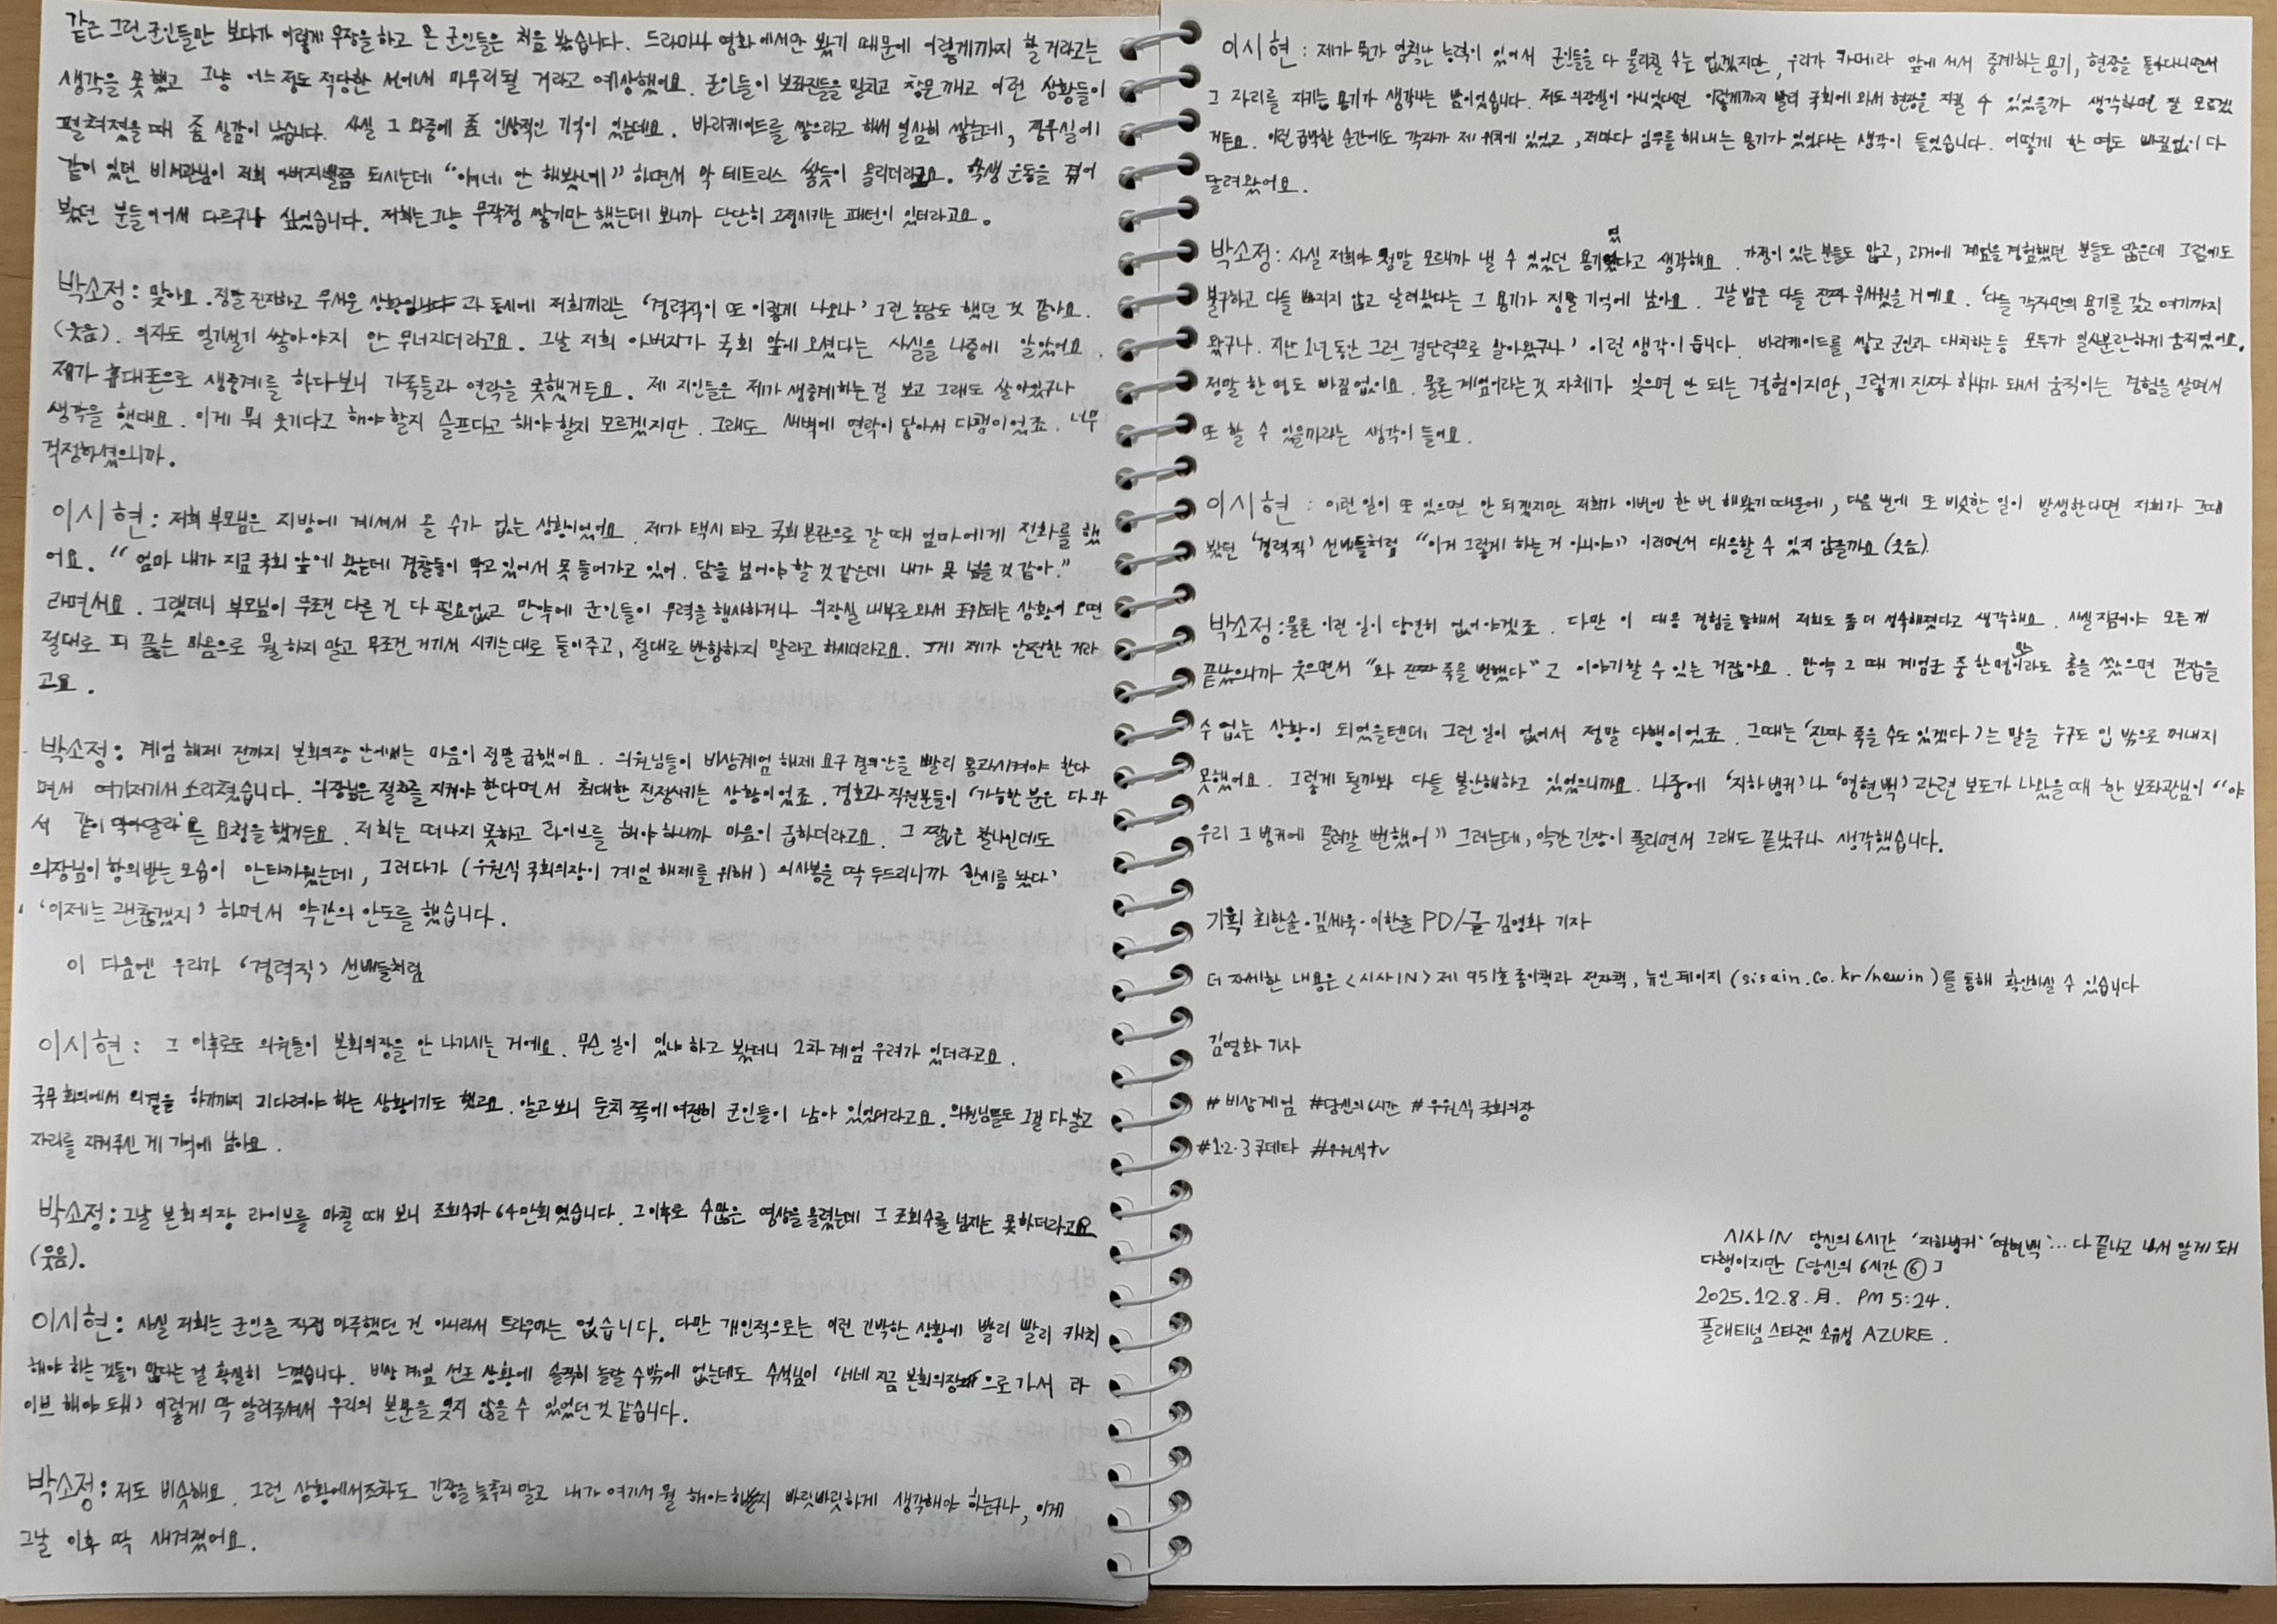 같은 그런 군인들만 보다가 이렇게 무장을 하고 온 군인들은 처음 봤습니다. 드라마나 영화에서만 봤기 때문에 이렇게까지 할 거라고는
생각을 못 했고 그냥 어느 정도 적당한 선에서 마무리될 거라고 예상했어요. 군인들이 보좌진들을 밀치고 창문 깨고 이런 상황들이
펼쳐졌을 때 좀 실감이 났습니다. 사실 그 와중에 좀 인상적인 기억이 있는데요. 바리케이드를 쌓으라고 해서 열심히 쌓는데, 정무실에
같이 있던 비서관님이 저희 아버지뻘쯤 되시는데 "얘네 안 해봤네" 하면서 막 테트리스 쌓듯이 올리더라고요. 학생 운동을 겪어
봤던 분들이어서 다르구나 싶었습니다. 저희는 그냥 무작정 쌓기만 했는데 보니까 단단히 고정시키는 패턴이 있더라고요.
박소정: 맞아요. 정말 진지하고 무서운 상황입니다 과 동시에 저희끼리는 '경력직이 또 이렇게 나오나' 그런 농담도 했던 것 같아요.
(웃음). 의자도 얼기설기 쌓아야지 안 무너지더라고요. 그날 저희 아버지가 국회 앞에 오셨다는 사실을 나중에 알았어요.
제가 휴대폰으로 생중계를 하다보니 가족들과 연락을 못했거든요. 제 지인들은 제가 생중계하는 걸 보고 그래도 살아있구나
생각을 했대요. 이게 뭐 웃기다고 해야 할지 슬프다고 해야 할지 모르겠지만. 그래도 새벽에 연락이 닿아서 다행이었죠. 너무
걱정하셨으니까.
이시현: 저희 부모님은 지방에 계셔서 올 수가 없는 상황이었어요. 제가 택시 타고 국회 본관으로 갈 때 엄마에게 전화를 했
어요. "엄마 내가 지금 국회 앞에 왔는데 경찰들이 막고 있어서 못 들어가고 있어. 담을 넘어야 할 것 같은데 내가 못 넘을 것 같아."
라면서요. 그랬더니 부모님이 무조건 다른 건 다 필요없고 만약에 군인들이 무력을 행사하거나 의장실 내부로 와서 포위되는 상황이 오면
절대로 피 끓는 마음으로 뭘 하지 말고 무조건 거기서 시키는 대로 들어주고, 절대로 반항하지 말라고 하시더라고요. 그게 제가 안전한 거라
고요.
박소정: 계엄 해제 전까지 본회의장 안에서는 마음이 정말 급했어요. 의원님들이 비상계엄 해제 요구 결의안을 빨리 통과시켜야 한다
면서 여기저기서 소리쳤습니다. 의장님은 절차를 지켜야 한다면서 최대한 진정시키는 상황이었죠. 경호과 직원분들이 '가능한 분은 다 와
서 같이 막아달라'는 요청을 했거든요. 저희는 떠나지 못하고 라이브를 해야 하니까 마음이 급하더라고요. 그 짧은 찰나인데도
의장님이 항의받는 모습이 안타까웠는데, 그러다가 (우원식 국회의장이 계엄 해제를 위해) 의사봉을 딱 두드리니까 '한시름 놨다'
'이제는 괜찮겠지' 하면서 약간의 안도를 했습니다.
이 다음엔 우리가 '경력직' 선배들처럼
이시현: 그 이후로도 의원들이 본회의장을 안 나가시는 거예요. 무슨 일이 있나 하고 봤더니 2차 계엄 우려가 있더라고요.
국무회의에서 의결을 하기까지 기다려야 하는 상황이기도 했고요. 알고 보니 둔치 쪽에 여전히 군인들이 남아 있었더라고요. 의원님들도 그걸 다 알고
자리를 지켜주신 게 기억에 남아요.
박소정: 그날 본회의장 라이브를 마칠 때 보니 조회수가 64만회였습니다. 그 이후로 수많은 영상을 올렸는데 그 조회수를 넘지는 못하더라고요
(웃음).
이시현: 사실 저희는 군인을 직접 마주했던 건 아니라서 트라우마는 없습니다. 다만 개인적으로는 이런 긴박한 상황에 빨리 빨리 캐치
해야 하는 것들이 많다는 걸 확실히 느꼈습니다. 비상 계엄 선포 상황에 솔직히 놀랄 수밖에 없는데도 수석님이 '너네 지금 본회의장으로 가서 라
이브 해야 돼' 이렇게 딱 알려주셔서 우리의 본분을 잊지 않을 수 있었던 것 같습니다.
박소정: 저도 비슷해요. 그런 상황에서조차도 긴장을 늦추지 말고 내가 여기서 뭘 해야 하는지 바릿바릿하게 생각해야 하는구나, 이게
그날 이후 딱 새겨졌어요.
이시현: 제가 뭔가 엄청난 능력이 있어서 군인들을 다 물리칠 수는 없겠지만, 우리가 카메라 앞에 서서 중계하는 용기, 현장을 돌아다니면서
그 자리를 지키는 용기가 생각나는 밤이었습니다. 저도 의장실이 아니었다면 이렇게까지 빨리 국회에 와서 현장을 지킬 수 있었을까 생각하면 잘 모르겠
거든요. 이런 급박한 순간에도 각자가 제 위치에 있었고, 저마다 임무를 해내는 용기가 있었다는 생각이 들었습니다. 어떻게 한 명도 빠짐없이 다
달려왔어요.
박소정: 사실 저희야 정말 모래까 낼 수 있었던 용기였다고 생각해요. 가정이 있는 분들도 많고, 과거에 계엄을 경험했던 분들도 많은데 그럼에도
불구하고 다들 빠지지 않고 달려왔다는 그 용기가 정말 기억에 남아요. 그날 밤은 다들 진짜 무서웠을 거예요. '다들 각자만의 용기를 갖고 여기까지
왔구나. 지난 1년 동안 그런 결단력으로 살아왔구나' 이런 생각이 듭니다. 바리케이드를 쌓고 군인과 대치하는 등 모두가 일사분란하게 움직였어요.
정말 한 명도 빠짐없이요. 물론 계엄이라는 것 자체가 잊으면 안 되는 경험이지만, 그렇게 진짜 하나가 돼서 움직이는 경험을 살면서
또 할 수 있을까라는 생각이 들어요.
이시현: 이런 일이 또 있으면 안 되겠지만 저희가 이번에 한 번 해봤기 때문에, 다음 번에 또 비슷한 일이 발생한다면 저희가 그때
봤던 '경력직' 선배들처럼 "이거 그렇게 하는 거 아니야" 이러면서 대응할 수 있지 않을까요 (웃음).
박소정: 물론 이런 일이 당연히 없어야겠죠. 다만 이 대응 경험을 통해서 저희도 좀 더 성숙해졌다고 생각해요. 사실 지금이야 모든 게
끝났으니까 웃으면서 "와 진짜 죽을 뻔했다"고 이야기할 수 있는 거잖아요. 만약 그 때 계엄군 중 한 명이라도 총을 쐈으면 걷잡을
수 없는 상황이 되었을텐데 그런 일이 없어서 정말 다행이었죠. 그때는 '진짜 죽을 수도 있겠다'는 말을 누구도 입 밖으로 꺼내지
못했어요. 그렇게 될까봐 다들 불안해하고 있었으니까요. 나중에 '지하벙커'나 '영현백' 관련 보도가 나왔을 때 한 보좌관님이 "야
우리 그 벙커에 끌려갈 뻔했어" 그러는데, 약간 긴장이 풀리면서 그래도 끝났구나 생각했습니다.
기획 최한솔·김세욱·이한울 PD/글 김영화 기자
더 자세한 내용은 <시사IN> 제951호 종이책과 전자책, 뉴인 페이지 (sisain.co.kr/newin)를 통해 확인하실 수 있습니다
김영화 기자
#비상계엄 #당신의6시간 #우원식 국회의장
#12·3쿠데타 #우원식tv
시사IN 당신의 6시간 '지하벙커' '영현백'… 다 끝나고 나서 알게 돼
다행이지만 [당신의 6시간 ⑥]
2025.12.8.月. PM 5:24.
플래티넘 스타렛 소유성 AZURE.